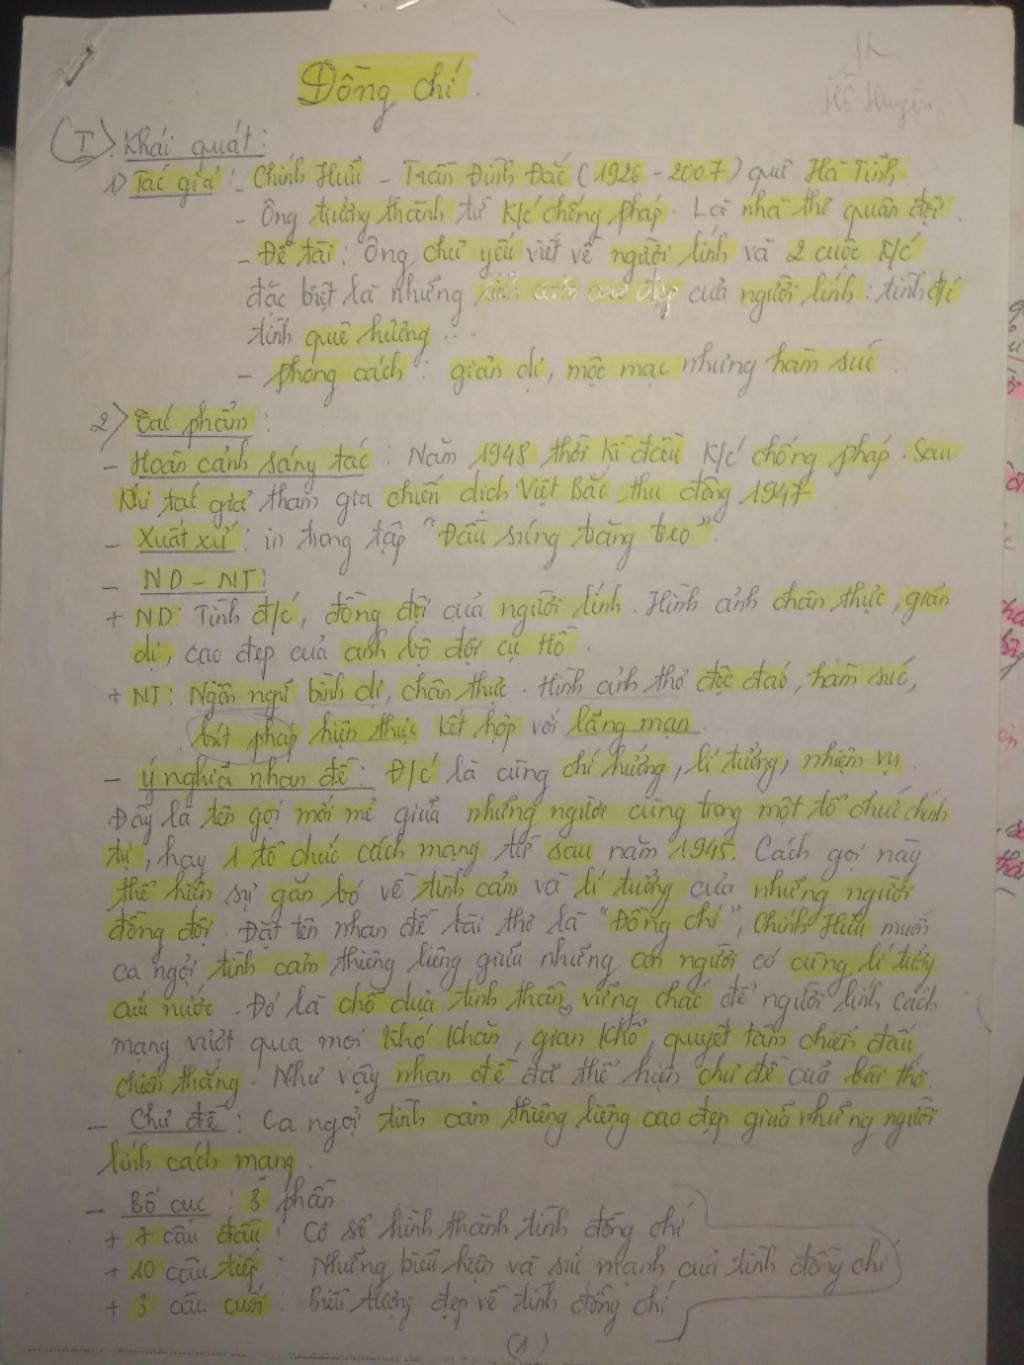 Đồng chí.
(I). Khái quát:
1) Tác giả: - Chính Hữu - Trần Đình Đắc (1926 - 2007) quê Hà Tĩnh
- Ông trưởng thành từ K/c chống pháp. Là nhà thơ quân đội.
- Đề tài: Ông chủ yếu viết về người lính và 2 cuộc K/c
đặc biệt là những tình cảm cao đẹp của người lính: tình đ/c
tình quê hương ...
- phong cách: giản dị, mộc mạc nhưng hàm súc.
2) Tác phẩm:
- Hoàn cảnh sáng tác: Năm 1948 thời kì đầu K/c chống pháp. Sau
khi tác giả tham gia chiến dịch Việt Bắc thu đông 1947
- Xuất xứ: in trong tập "Đầu súng trăng treo".
- ND - NT:
+ ND: Tình đ/c, đồng đội của người lính. Hình ảnh chân thực, giản
dị, cao đẹp của anh bộ đội cụ Hồ.
+ NT: Ngôn ngữ bình dị, chân thực. Hình ảnh thơ độc đáo, hàm súc,
bút pháp hiện thực kết hợp với lãng mạn.
- Ý nghĩa nhan đề: Đ/c là cùng chí hướng, lí tưởng, nhiệm vụ.
Đây là tên gọi mới mẻ giữa những người cùng trong một tổ chức chính
trị, hay 1 tổ chức cách mạng từ sau năm 1945. Cách gọi này
thể hiện sự gắn bó về tình cảm và lí tưởng của những người
đồng đội. Đặt tên nhan đề bài thơ là "Đồng chí", Chính Hữu muốn
ca ngợi tình cảm thiêng liêng giữa những con người có cùng lí tưởng
cứu nước. Đó là chỗ dựa tinh thần vững chắc để người lính cách
mạng vượt qua mọi khó khăn, gian khổ, quyết tâm chiến đấu
chiến thắng. Như vậy nhan đề đã thể hiện chủ đề của bài thơ.
- Chủ đề: Ca ngợi tình cảm thiêng liêng cao đẹp giữa những người
lính cách mạng.
- Bố cục: 3 phần
+ 7 câu đầu: Cơ sở hình thành tình đồng chí
+ 10 câu tiếp: Những biểu hiện và sức mạnh của tình đồng chí
+ 3 câu cuối: Biểu tượng đẹp về tình đồng chí
(1)